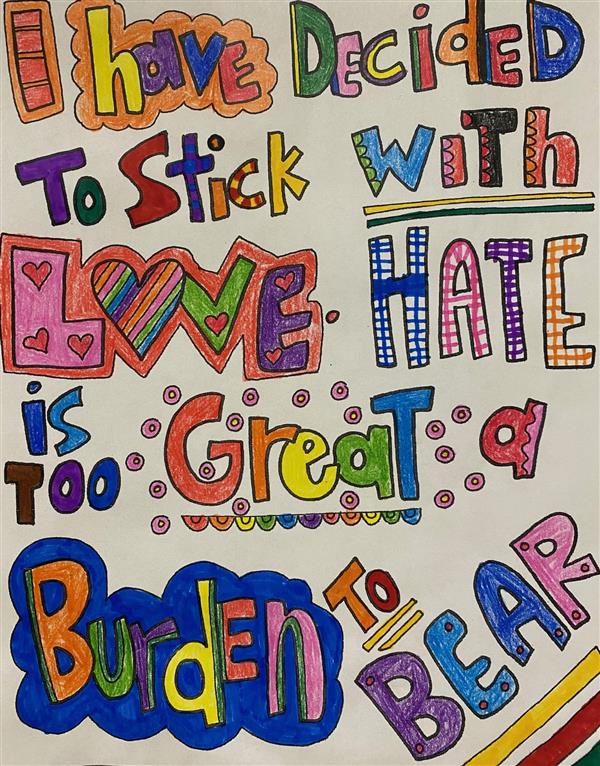 I have DEcidED
To Stick with
LOVE. HATE
is Great a
TOO
BurdEn TO BEAR